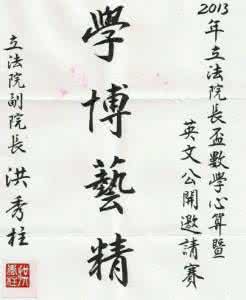 2013年立法院長盃數學心算暨
英文公開邀請賽
學博藝精
立法院副院長 洪秀柱